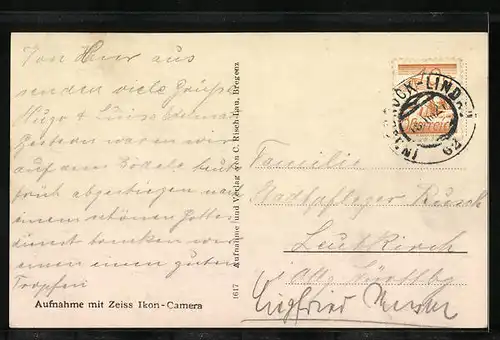 Von hier aus
senden viele Grüße
Hugo & Luise
Gestern waren wir
auf dem Bödele heut
früh abgestiegen nach
einem schönen Gottes
dienst trinken wir
einen guten
Tropfen
Aufnahme mit Zeiss Ikon-Camera
1617 Aufnahme und Verlag von C. Risch-Lau, Bregenz
INNSBRUCK-LINDAU
62
Familie
Stadtpfleger Rusch
Leutkirch
Siegfried